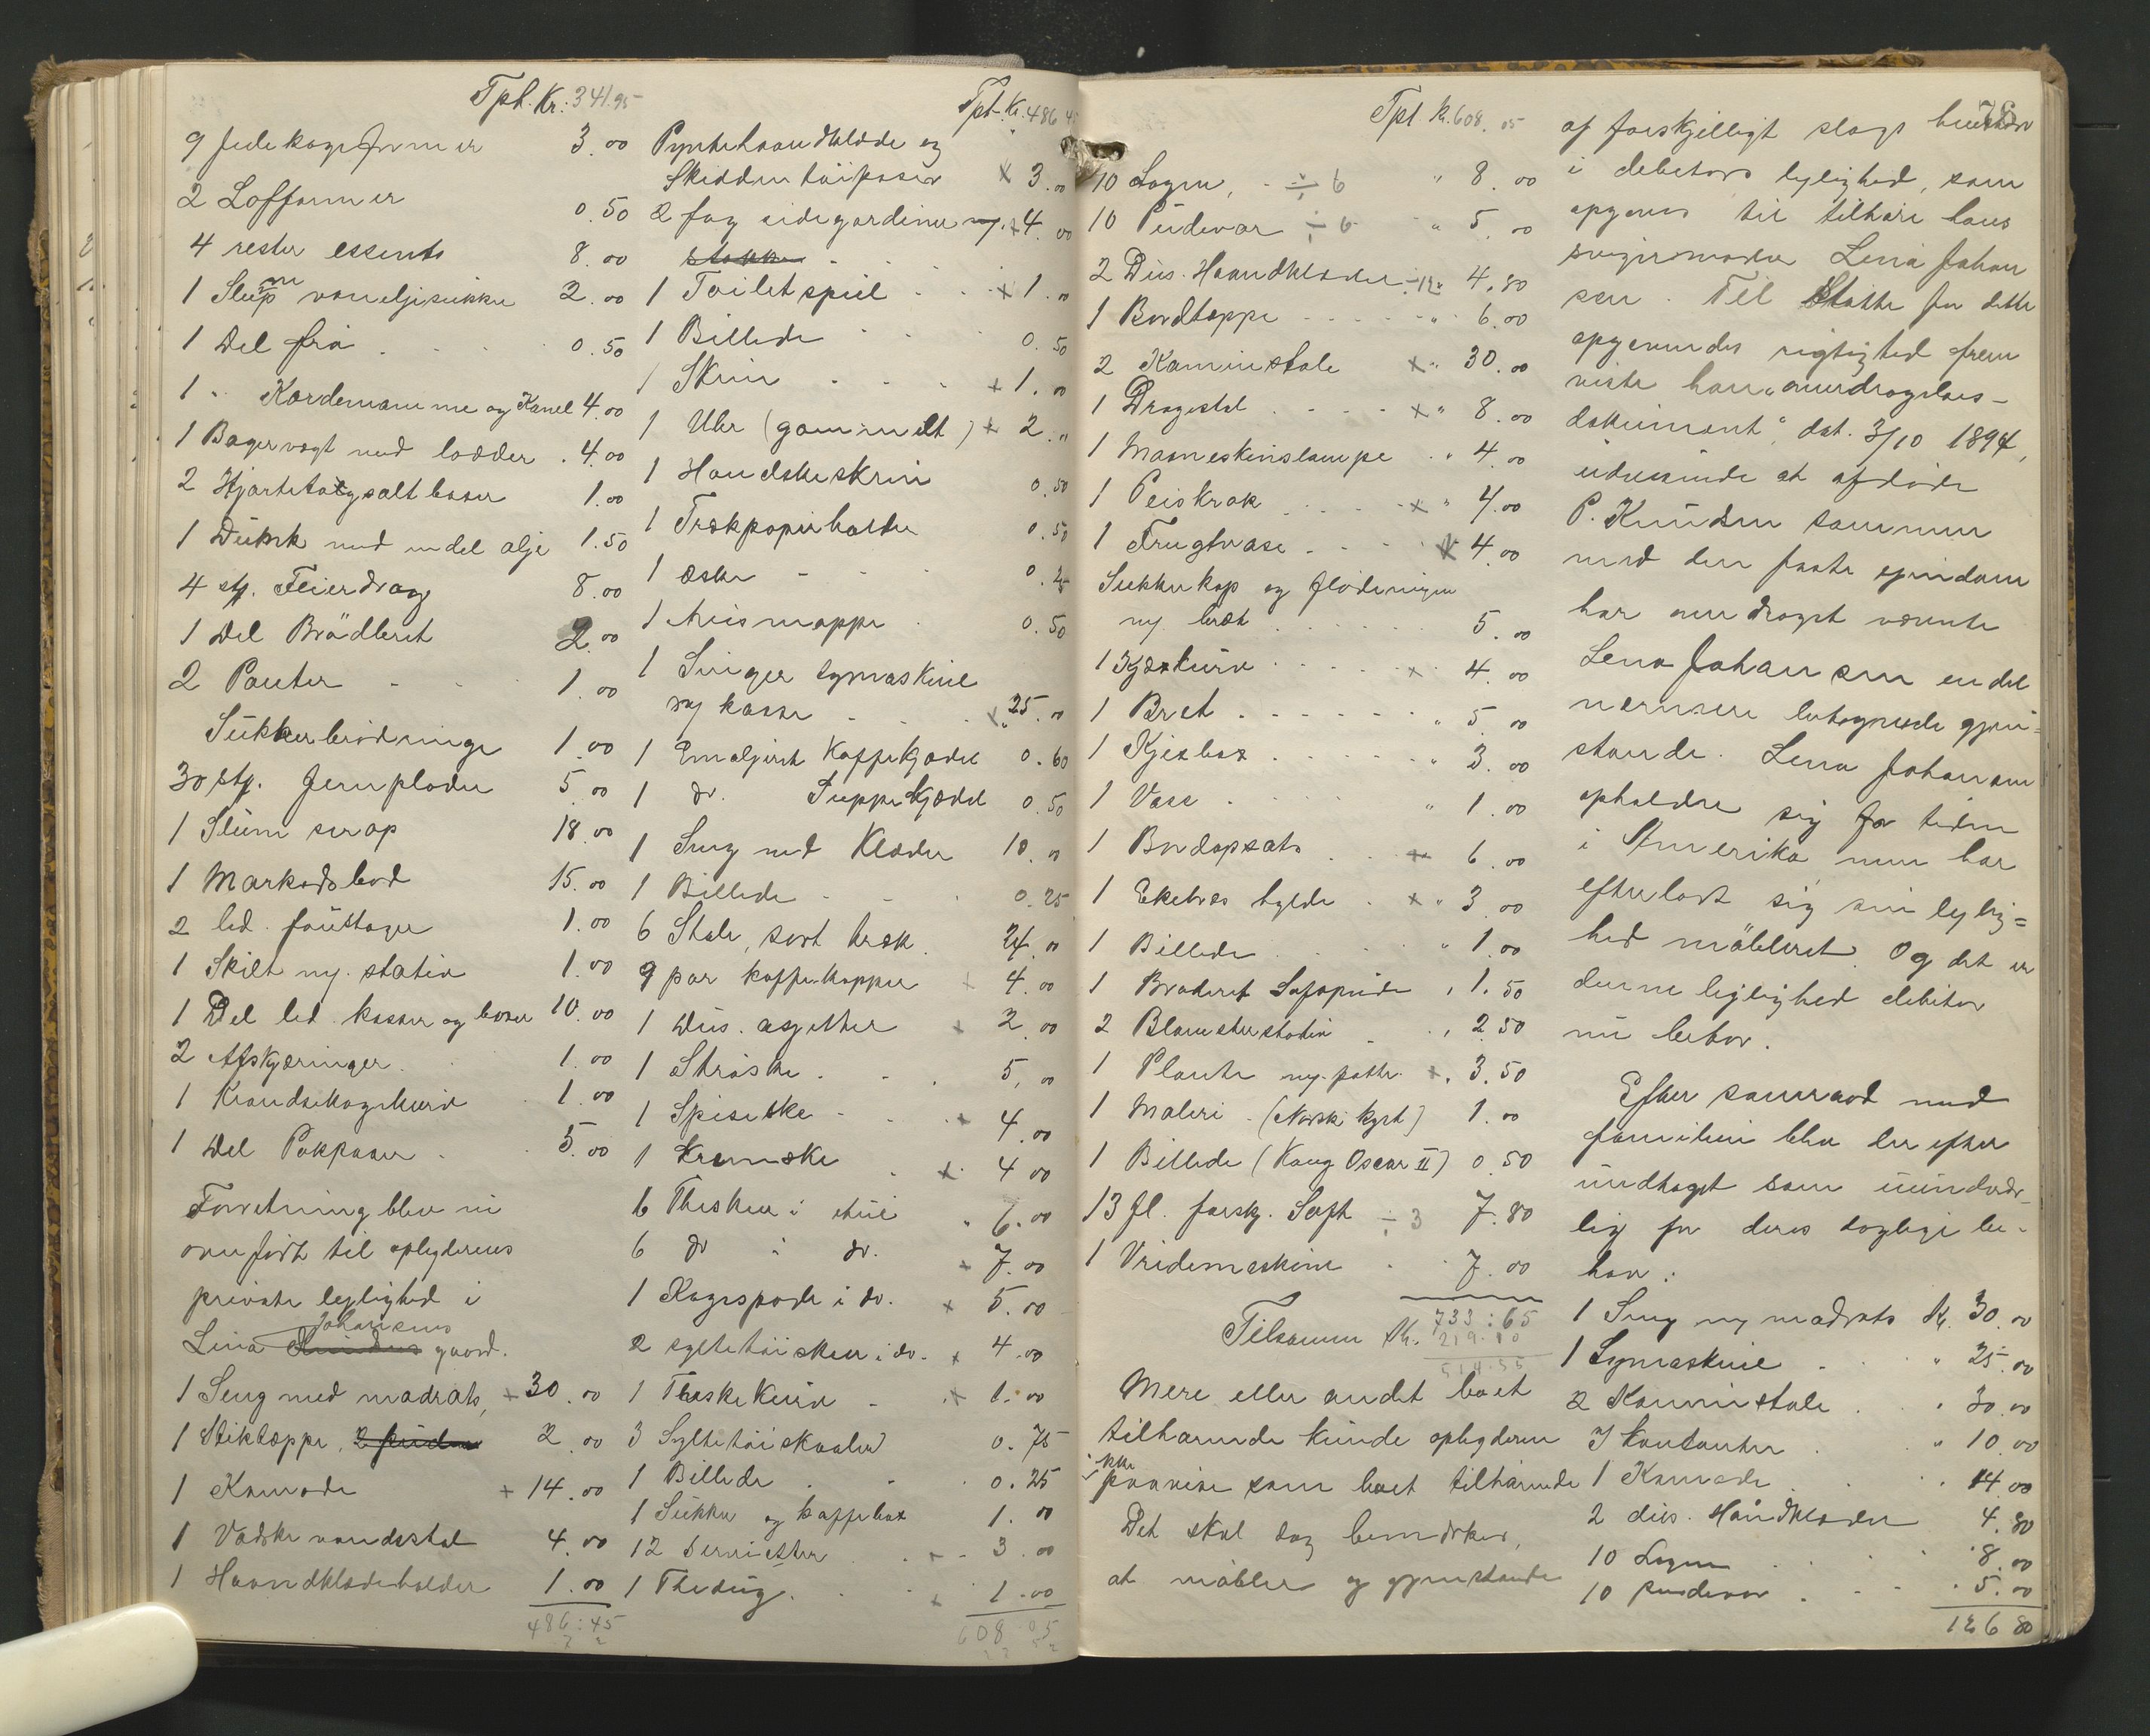 Tpt. Kr: 341.95
9 Julekageformer 3.00
2 Lofformer 0.50
4 rester essents 8.00
1 Slump vaneljesukker 2.00
1 Del frø 0.50
1 " Kardemamme og Kanel 4.00
1 Bagervægt med lodder . 4.00
2 Hjortetaksalt boser 1.00
1 Dunk med en del olje 1.50
4 stz. Feierdrag 8.00
1 Del Brödbret 2.00
2 Pauter 1.00
Sukkerbrödringe 1.00
30 stz. Jernplader 5.00
1 Slum sirop 18.00
1 Markedsbod 15.00
2 led. foustager 1.00
1 Skilt og stativ 1.00
1 Del led. kasser og boser 10.00
2 Afskjæringer 1.00
1 Krandsekagekurv 1.00
1 Del Pakposer 5.00
Forretning blev nu
overført til opbyderens
private leylighed i
Lina Johansens gaard.
1 Seng med madrats, + 30.00
1 Stiktæppe, 2 puder 2.00
1 Kamode + 14.00
1 Vadskevandsstol 4.00
1 Haandklædeholder 1.00
486:45
Tpt. Kr. 486 45
Pyntehaandklæde og
Skiddentøiposer x 3.00
2 fag sidegardiner og x 4.00
stokker
1 Toiletspeil x 1.00
1 Billede 0.50
1 Skrin + 1.00
1 Uhr (gammelt) x 2."
1 Handskeskrin 0.50
1 Trækpapirholder 0.50
1 æske 0.25
1 Avismappe 0.50
1 Singer symaskine
og kasse x 25.00
1 Emaljeret Kaffekjedel 0.60
1 do. Suppekjedel 0.50
1 Seng med Klæder 10.00
1 Billede 0.25
6 Stole, sort træk. 24.00
9 par kaffekopper x 4.00
1 Dus. asjetter x 2.00
1 Strøske 5.00
1 Spiseske x 4.00
1 Kremske x 4.00
6 Theskeer i etui 6.00
6 do " do. x 7.00
1 Kagespade i do. x 5.00
2 syltetøiskeer i do. x 4.00
1 Theskekurv x 1.00
3 Syltetøiskaaler 0.75
1 Billede 0.25
1 Sukker og kaffebox 1.00
12 Servietter 3.00
1 Thedug. x 1.00
608 05
Tpt. Kr. 608.05
10 Lagen, ÷ 6 " 8.00
10 Pudevar ÷ 6 " 5.00
2 Dus. Haandklæder ÷ 12 " 4.80
1 Bordtæppe " 6.00
2 Kaminstole x " 30.00
1 Dragestol x " 8.00
1 Maaneskinslampe " 4.00
1 Peiskrak x " 4.00
1 Frugtvase x 4.00
Sukkerkop og flødemugge
og bret 5.00
1 Kjækskurv x 4.00
1 Bret " 5.00
1 Kjexbox " 3.00
1 Vase " 1.00
1 Bordopsats x 6.00
1 Eketræs hylde x " 3.00
1 Billede " 1.00
1 Broderet Sofapude " 1.50
2 Blomsterstativ " 2.50
1 Plante og potte x . 3.50
1 Maleri (Norsk kyst) 1.00
1 Billede (Kong Oscar II) 0.50
13 fl. forskj. Saft ÷ 3 7.80
1 Vridemaskine 7.00
Tilsamm Kr. 733:65
219.10
514.55
Mere eller andet boet
tilhørende kunde opbyderen
ikke
paavise som boet tilhørende
Det skal dog bemærkes,
at møbler og gjenstande
78
af forskjelligt slags
i debitors leylighed, som
opgives til tilhøre hans
svigermoder Lena Johan
sen. Til Støtte for dette
opgivendes rigtighed frem
viste han "overdragelses-
dokument", dat. 3/10 1894,
udvisende at afdøde
P. Knudsen sammen
med den faste eiendom
har overdraget nævnte
Lena Johansen en del
nærmere betegnede gjen=
stande. Lena Johansen
opholder sig for tiden
i Amerika, men har
efterladt sig sin leylig=
hed møbleret. Og det er
denne leylighed debitor
nu bebor.
Efter samraad med
familien blev derefter
undtaget som uundvær-
lig for deres daglige be-
hov:
1 Seng og madrats Kr. 30.00
1 Symaskine " 25.00
2 Kaminstole " 30.00
" 10.00
1 Kamode " 14.00
2 dus. Håndklæder 4.80
10 Lagen " 8.00
10 pudevar " 5.00
126 80